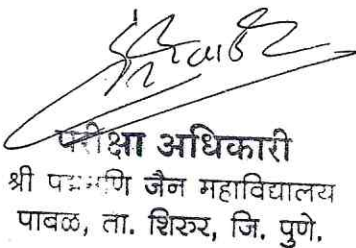 परीक्षा अधिकारी
श्री पद्ममणि जैन महाविद्यालय
पावळ, ता. शिरुर, जि. पुणे.